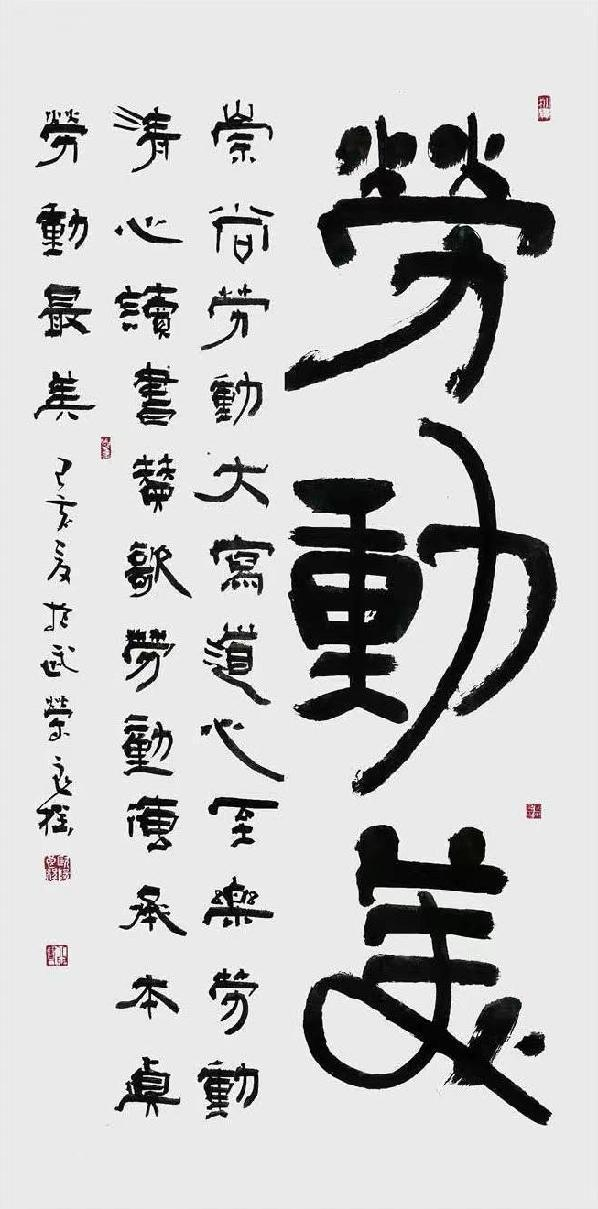 勞動美
崇尚勞動大寫道心至樂勞動
清心讀書贊歌勞動傳承本真
勞動最美
己亥夏於武榮良